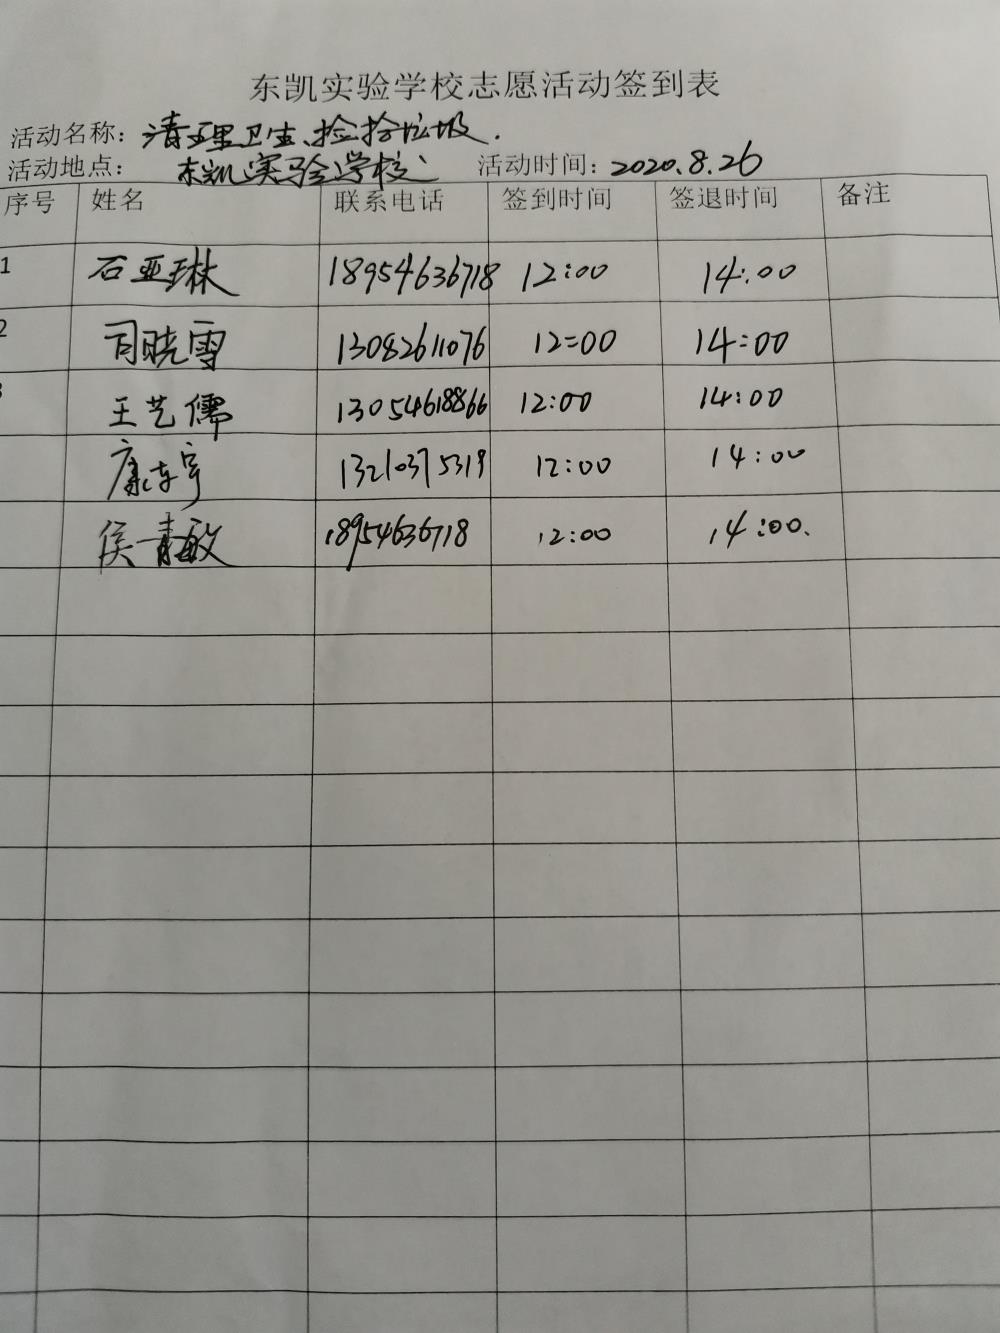 东凯实验学校志愿活动签到表
活动名称：清理卫生、捡拾垃圾.
活动地点： 东凯实验学校 活动时间：2020.8.26
序号 姓名 联系电话 签到时间 签退时间 备注
1 石亚琳 18954636718 12:00 14:00
2 司晓雪 13082611076 12:00 14:00
3 王艺儒 13054618866 12:00 14:00
康东宇 13210375319 12:00 14:00
侯青敏 18954636718 12:00 14:00.